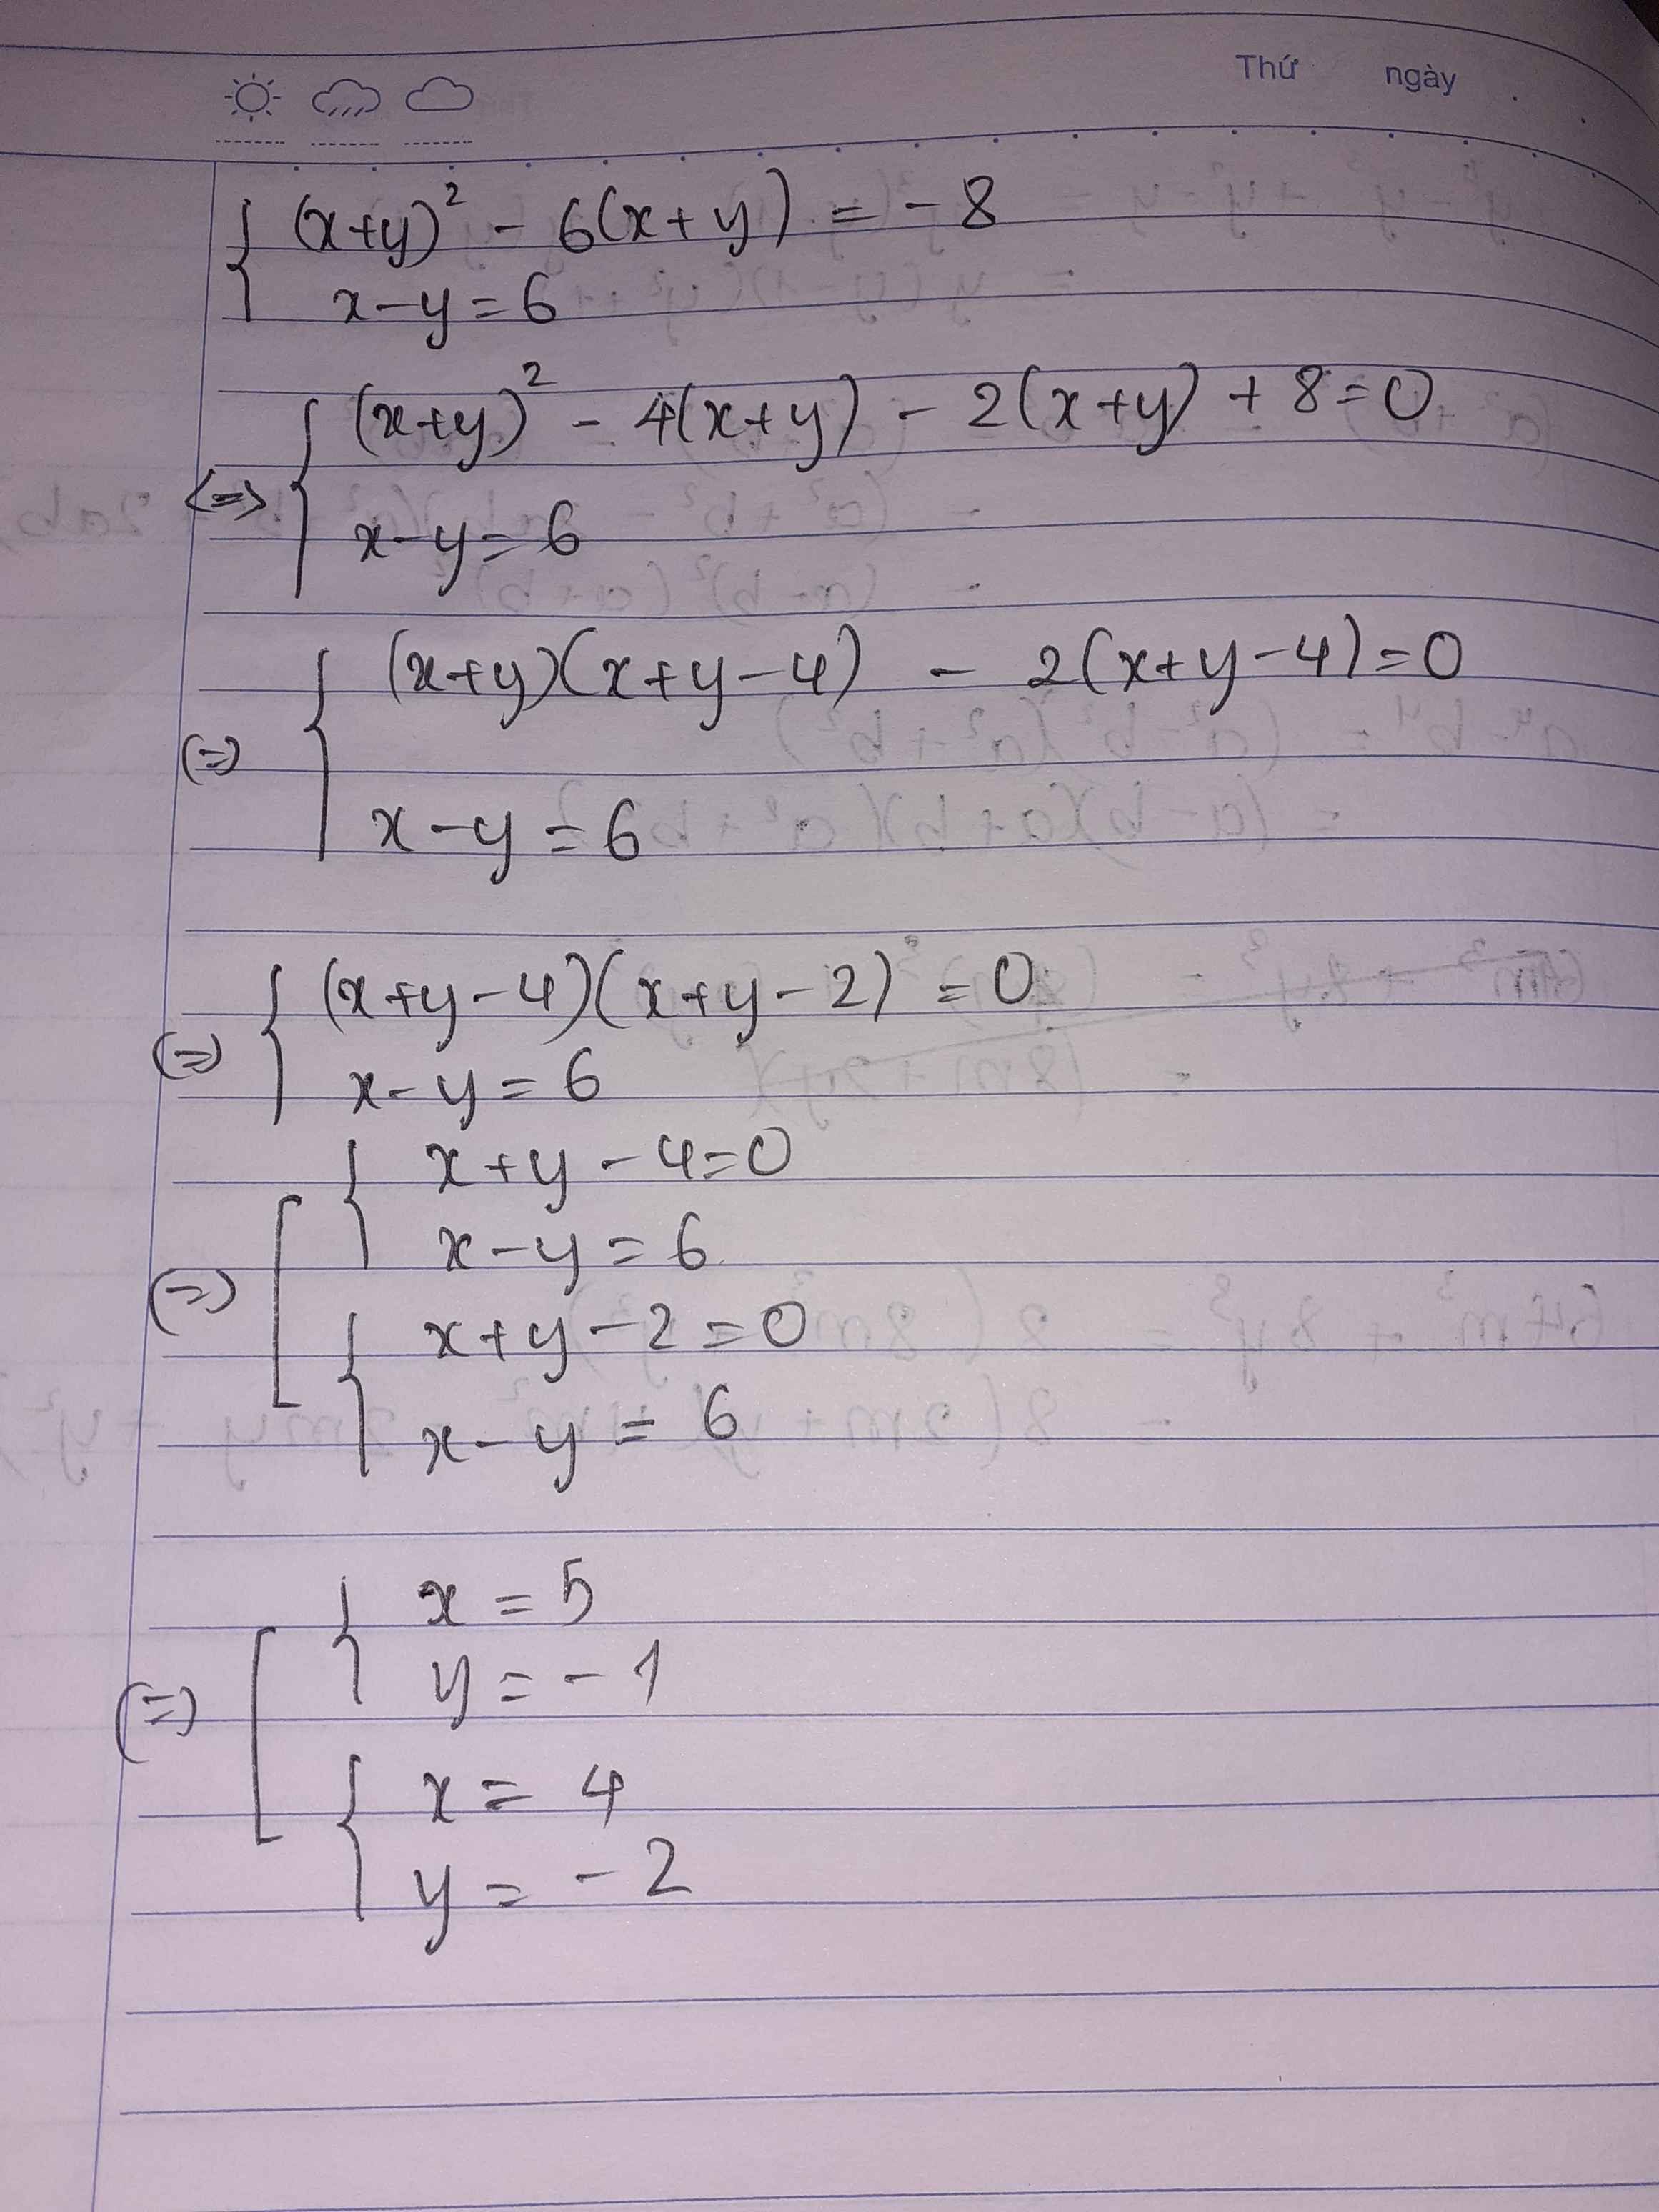 Thứ ngày
(x+y)² - 6(x+y) = -8
x-y=6
(x+y)² - 4(x+y) - 2(x+y) + 8=0
<=>
x-y=6
(x+y)(x+y-4) - 2(x+y-4)=0
(=)
x-y=6
(x+y-4)(x+y-2) = 0
(=)
x-y=6
x+y-4=0
x-y=6
(=)
x+y-2=0
x-y=6
x=5
y=-1
(=)
x=4
y=-2